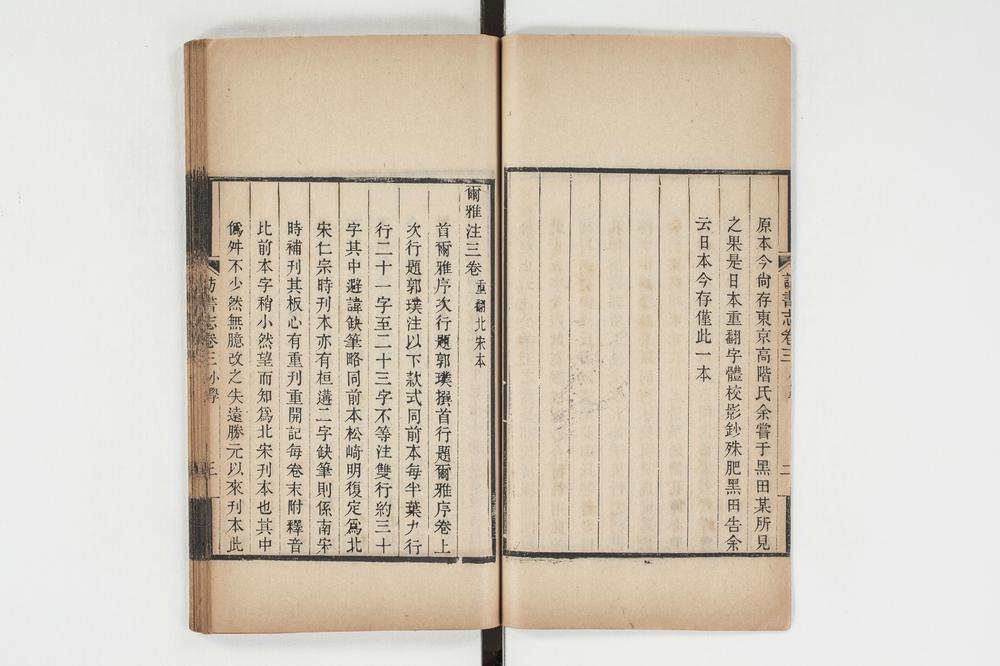 原本今尙存東京高階氏余嘗于黑田某所見
之果是日本重翻字體校影鈔殊肥黑田告余
云日本今存僅此一本
書志卷三
二
爾雅注三卷 重翻北宋本
首爾雅序次行題郭璞撰首行題爾雅序卷上
次行題郭璞注以下款式同前本每半葉九行
行二十一字至二十三字不等注雙行約三十
字其中避諱缺筆略同前本松崎明復定爲北
宋仁宗時刊本亦有桓遘二字缺筆則係南宋
時補刊其板心有重刊重開記每卷末附釋音
比前本字稍小然望而知爲北宋刊本也其中
僞舛不少然無臆改之失遠勝元以來刊本此
訪書志卷三 小學
三